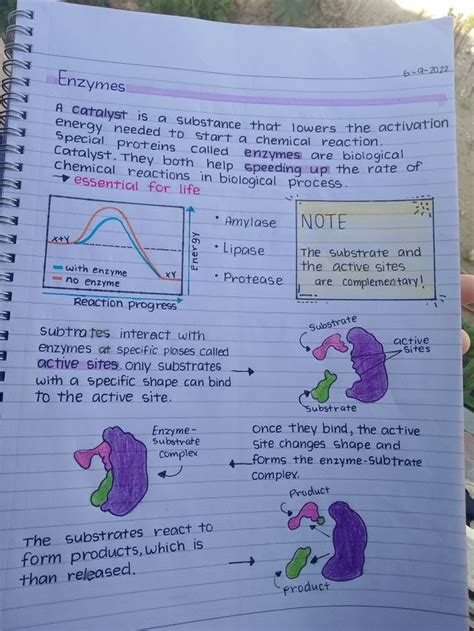 6-9-2022
Enzymes
A catalyst is a substance that lowers the activation
energy needed to start a chemical reaction.
Special proteins called enzymes are biological
Catalyst. They both help speeding up the rate of
chemical reactions in biological process.
→ essential for life
X+Y
XY
with enzyme
no enzyme
Energy
Reaction progress
• Amylase
• Lipase
• Protease
NOTE
The substrate and
the active sites
are complementary!
Subtrates interact with
enzymes at specific plases called
active sites. only substrates
with a specific shape can bind
to the active site.
Substrate
active
sites
Substrate
Enzyme-
substrate
complex
Once they bind, the active
site changes shape and
forms the enzyme-subtrate
complex.
The substrates react to
form products, which is
than released.
Product
product